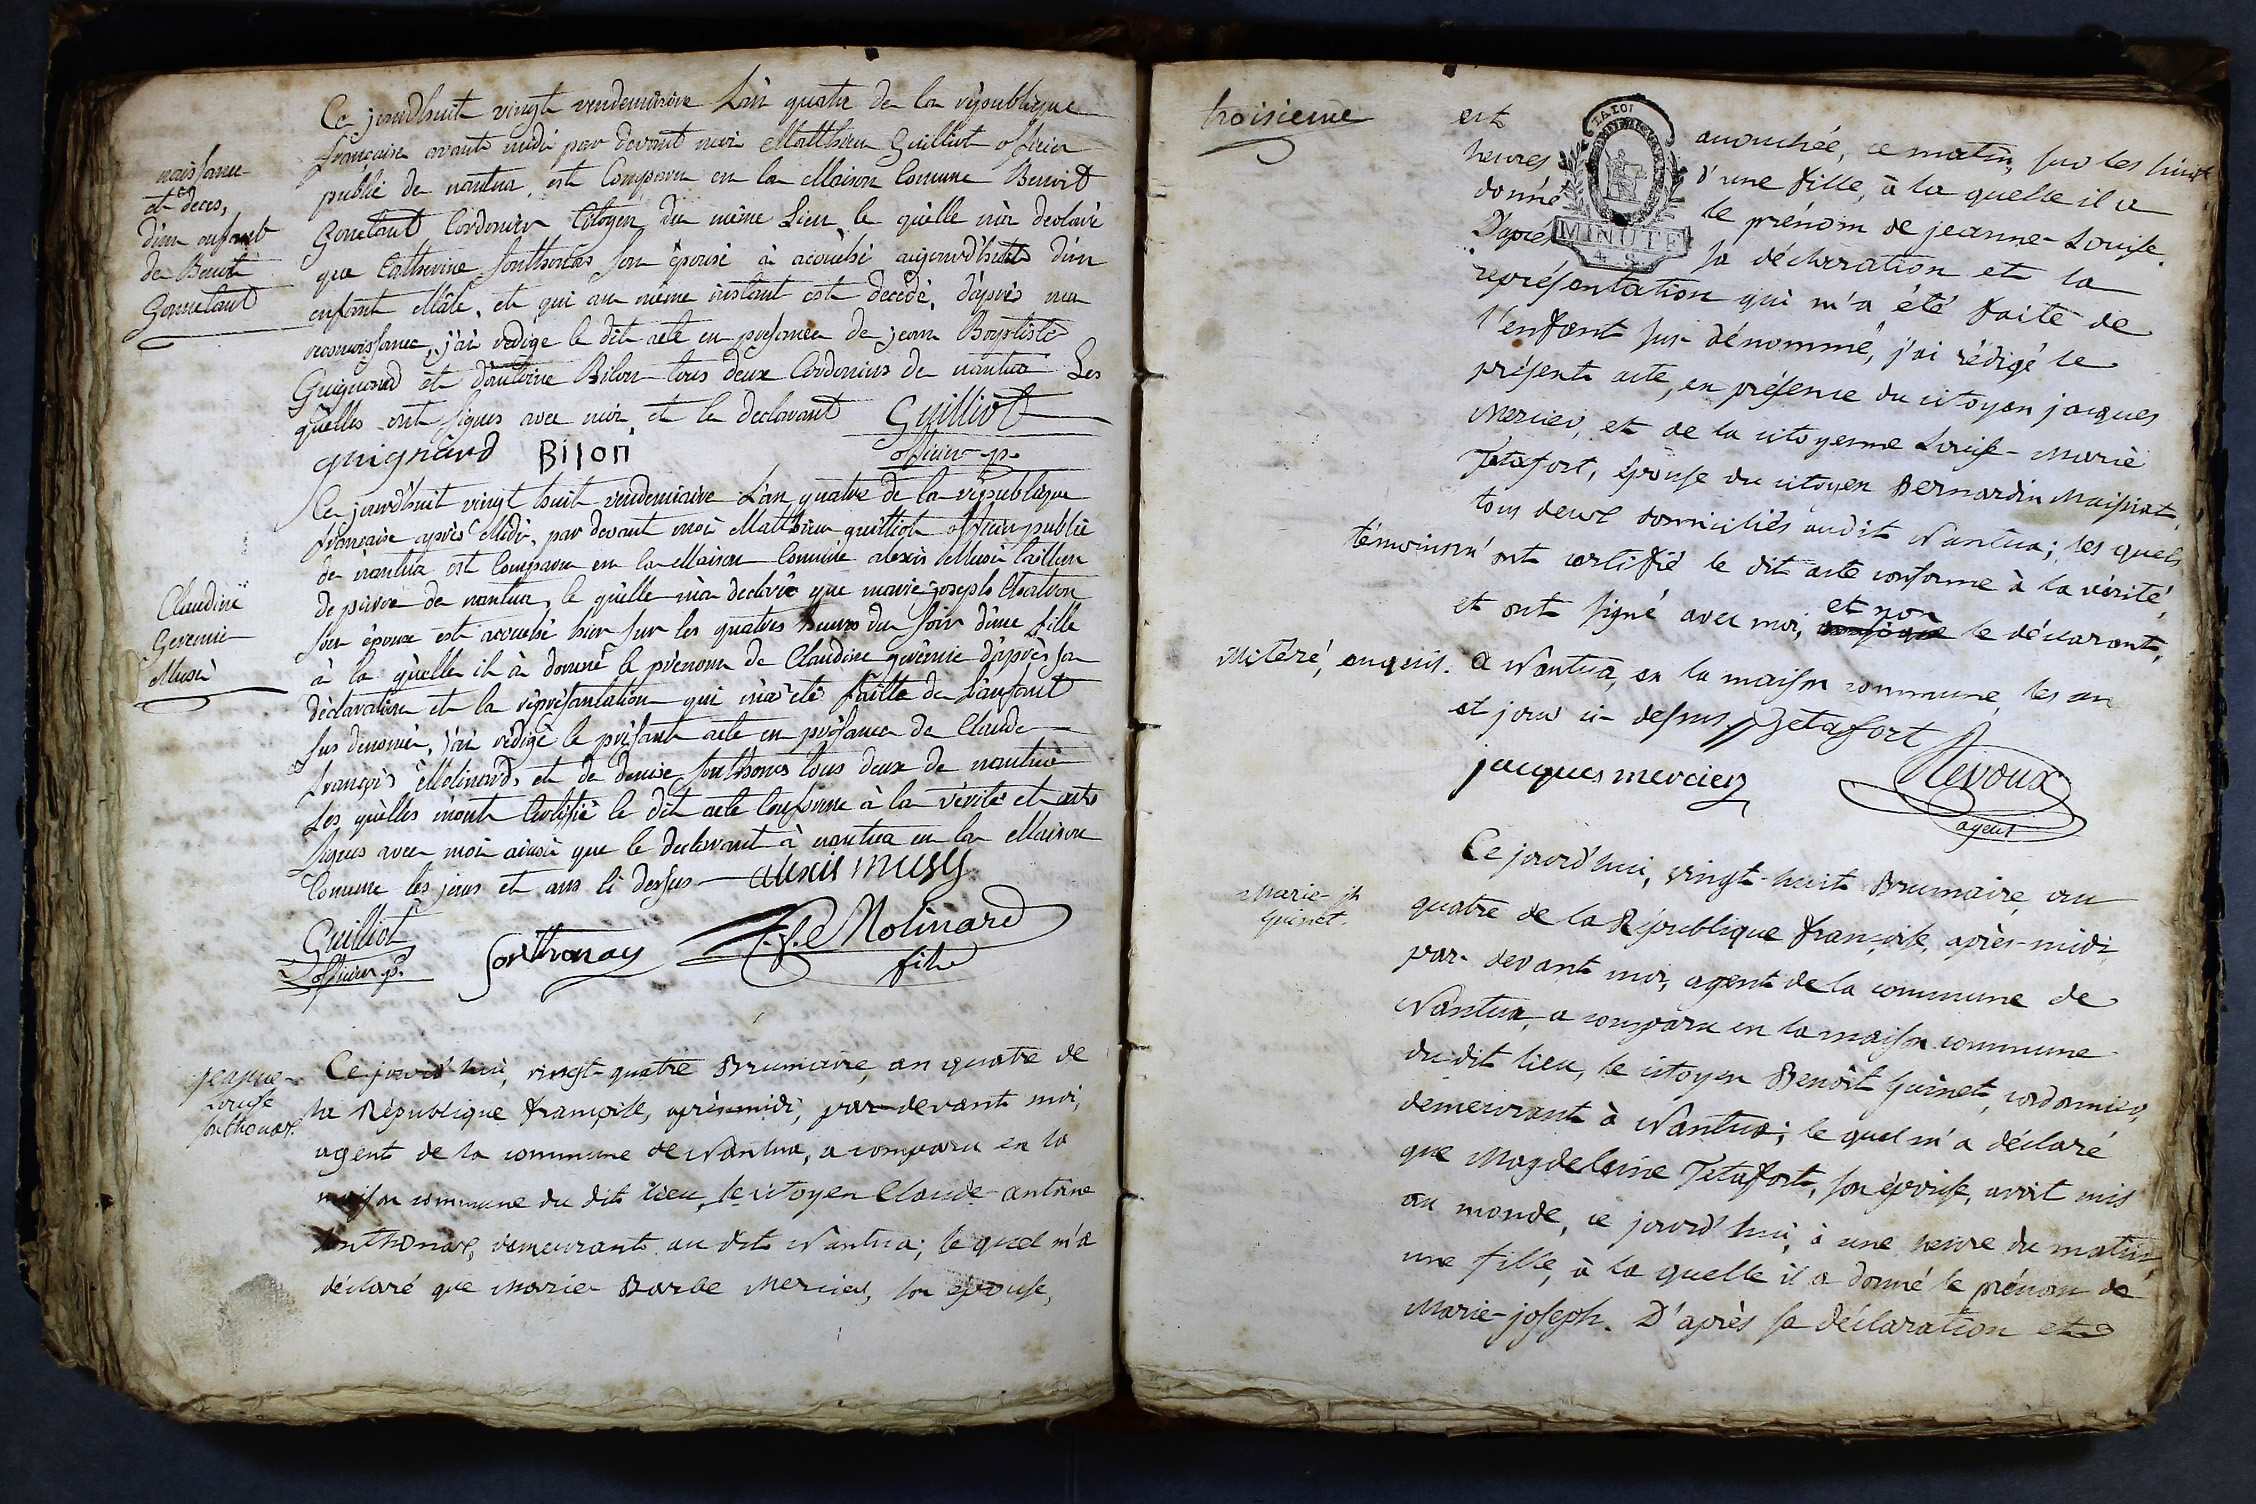 Ce jourdhuit vingt vendemiaire L'an quatre de la republique
française avant midi par devant moi Matthieu Guilliot officier
public de nantua, est Comparu en la Maison Comune Benoit
Goutant Cordonier Citoyen du même Lieu le quelle m'a declaré
que Catherine Sonthonas son épouse à acouché aujourd'huit d'un
enfant Mâle, et qui au même instant est decedé, d'après ma
reconnoissance, j'ai redigé le dit acte en presance de jean Baptiste
Guignard et d'antoine Bilon tous deux Cordoniers de nantua Les
quelles ont signés avec moi, et le declarant Guilliot
officier p.
guignard Bilon
naissance
et deces,
d'un enfant
de Benoit
Goutant
Ce jourd'huit vingt huit vendemiaire L'an quatre de la republique
française après Midi, par devant moi Matthieu guilliot officier public
de nantua est Comparu en la Maison Comune alexis Musi tailleur
de pierre de nantua, le quelle m'a declaré que marie joseph Chatron
son épouse est acouché hier sur les quatres heures du soir d'une fille
à la quelle il à donné le prénom de Claudine gevenie d'après sa
déclaration et la répresantation qui m'a été faitte de L'anfant
sus denomé, j'ai rédigé le présant acte en présance de Claude
françois Molinard, et de denise Sonthonas tous deux de nantua
Les quelles m'ont Certifié le dit acte Conforme à la vérité et onts
signés avec moi ainsi que le declarant à nantua en la Maison
Comune les jours et ans ci dessus alexis musy
Guilliot
officier p.
sonthonay
C. f. Molinard
fils
Claudine
Gevenie
Musi
Ce jourd'hui, vingt-quatre Brumaire, an quatre de
la République française, après-midi, par-devant moi,
agent de la commune de Nantua, a comparu en la
maison commune du dit lieu, le citoyen Claude-antoine
Sonthonax, demeurant au dit Nantua; le quel m'a
déclaré que Marie Barbe Mercier, son épouse,
jeanne-
Louise
sonthonax.
troisieme
est accouchée, ce matin, sur les huit
heures d'une fille, à la quelle il a
donné le prénom de jeanne-Louise.
D'après sa déclaration et la
représentation qui m'a été faite de
l'enfant sus-dénommé, j'ai rédigé le
présent acte, en présence du citoyen jacques
Mercier, et de la citoyenne Louise-Marie
Jetafort, épouse du citoyen Bernardin Maissiat,
tous deux domiciliés audit Nantua; les quels
témoins m'ont certifié le dit acte conforme à la vérité,
et ont signé avec moi, et non le déclarant,
illitéré, enquis. A Nantua, en la maison commune, les an
et jour ci-dessus // Jetafort
jacques mercier
Nevoux
agent
LA LOI
MINUTE
4. S.
Ce jourd'hui, vingt-huit Brumaire, an
quatre de la République française, après-midi,
par-devant moi, agent de la commune de
Nantua, a comparu en la maison commune
du dit lieu, le citoyen Benoît Guinet, cordonnier,
demeurant à Nantua; le quel m'a déclaré
que Magdeleine Jetafort, son épouse, avoit mis
au monde, ce jourd'hui, à une heure du matin,
une fille, à la quelle il a donné le prénom de
Marie-joseph. D'après sa déclaration et
Marie-jh
guinet.